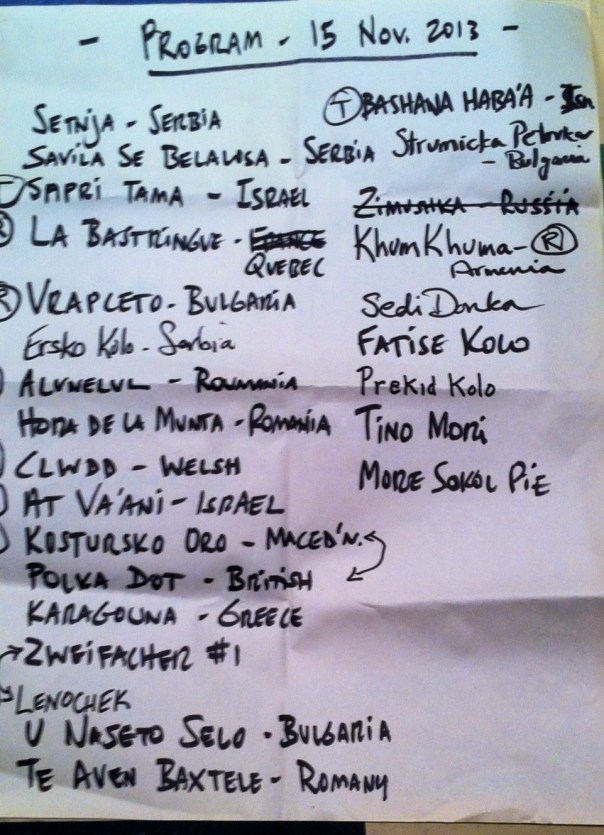 - PROGRAM - 15 NOV. 2013 -
SETNJA - SERBIA
SAVILA SE BELA LOSA - SERBIA
SAPRI TAMA - ISRAEL
R LA BASTRINGUE - FRANCE
QUEBEC
R VRAPCETO - BULGARIA
Ersko Kolo - Serbia
ALUNELUL - ROUMANIA
HORA DE LA MUNTA - ROMANIA
CLWDD - WELSH
AT VA'ANI - ISRAEL
KOSTURSKO ORO - MACED'N.
POLKA DOT - BRITISH
KARAGOUNA - GREECE
→ ZWEIFACHER #1
LENOCHEK
U NASETO SELO - BULGARIA
TE AVEN BAXTELE - ROMANY
T BASHANA HABA'A - Isr
Strumicka Petorka
- Bulgaria
ZIMUSHKA - RUSSIA
Khum Khuma - R
Armenia
Sedi Donka
FATISE KOLO
Prekid Kolo
TINO MORI
MORE SOKOL PIE